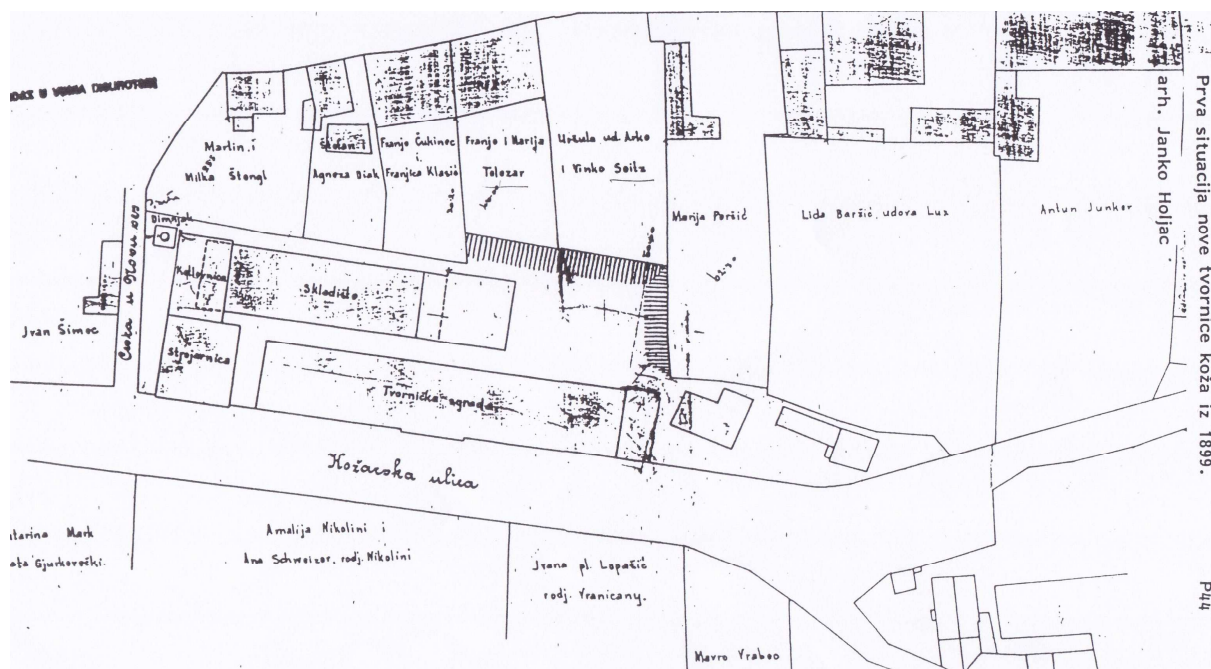 Prva situacija nove tvornice koža iz 1899.
arh. Janko Holjac
P44
Martin i
Milka Štengl
Štefan i
Agneza Dišk
Franjo Čukinec
i
Franjica Klasić
Franjo i Marija
Tolozar
Uršula ud. Arko
i Vinko Seitz
Marija Peršić
Lida Baršić, udova Lux
Antun Junker
Dimnjak
Kotlovnica
Skladište
Strojarnica
Tvornička zgrada
Jvan Šimec
Cesta u Novu ves
Kožarska ulica
Mark
Gjurkovečki.
Amalija Nikolini i
Ana Schweizer, rodj. Nikolini
Jvana pl. Lopašić
rodj. Vranicany.
Mavro Vrabec